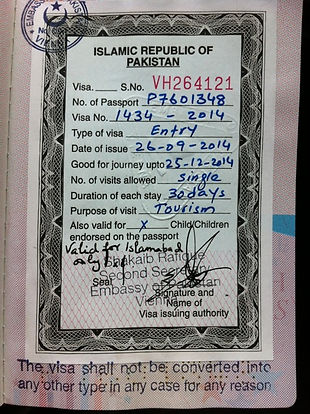 ISLAMIC REPUBLIC OF
PAKISTAN
Visa. S.No. VH264121
No. of Passport P7601348
Visa No. 1434 - 2014
Type of visa Entry
Date of issue 26-09-2014
Good for journey upto 25-12-2014
No. of visits allowed single
Duration of each stay 30 days
Purpose of visit Tourism
Also valid for X Child/Children
endorsed on the passport
Valid for Islamabad
only
Shakaib Rafique
Second Secretary
Seal
Embassy of Pakistan
Signature and
Name of
Visa issuing authority
The visa shall not be converted into
any other type in any case for any reason